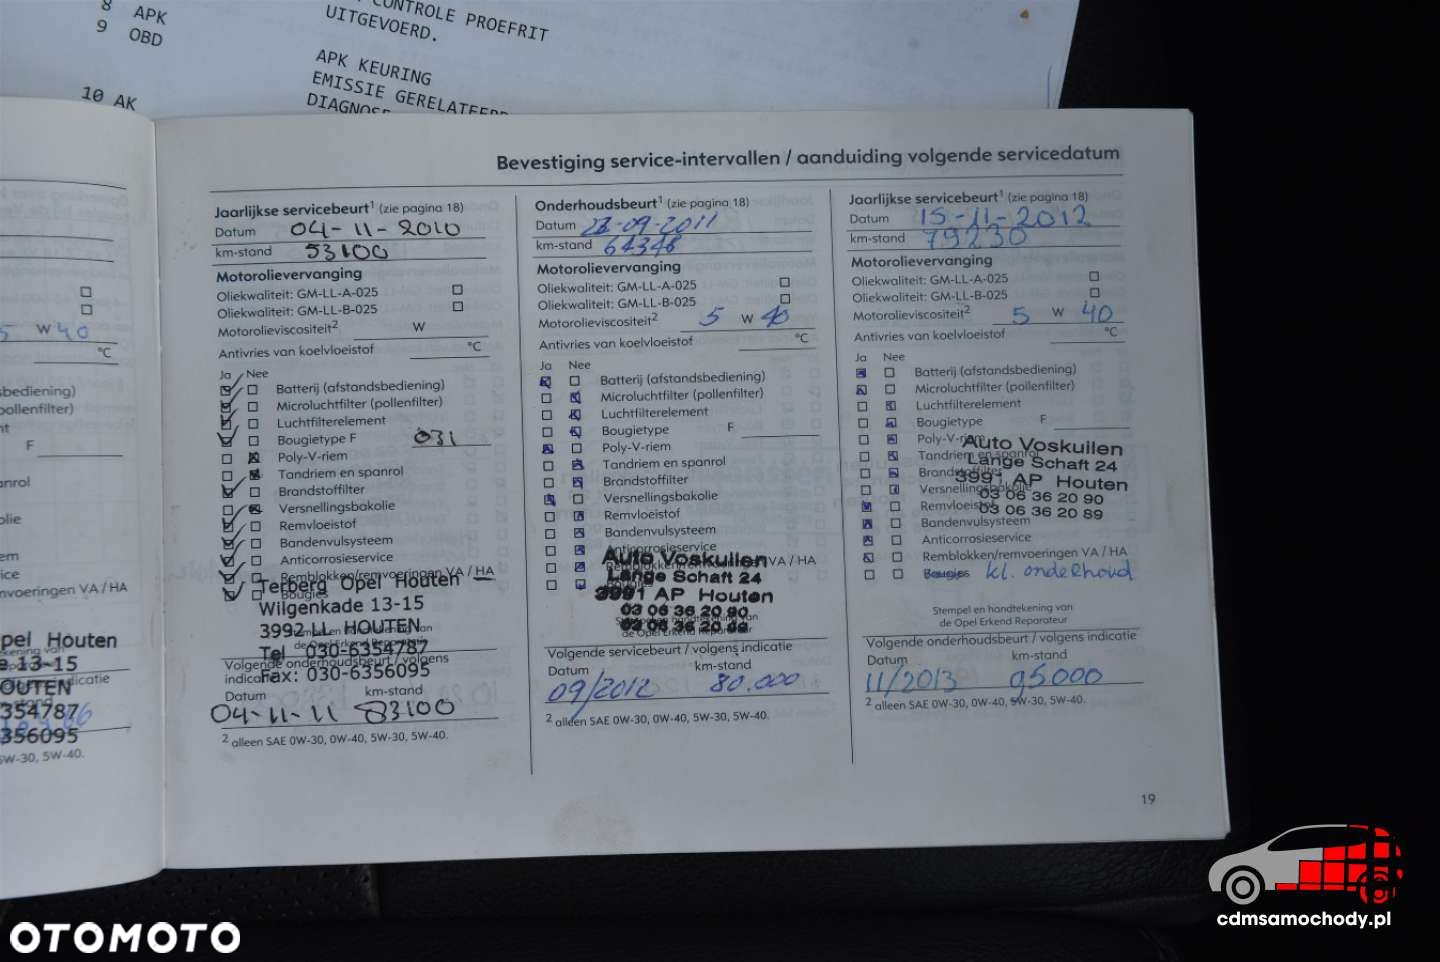 8 APK
9 OBD
10 AK
CONTROLE PROEFRIT
UITGEVOERD.
APK KEURING
EMISSIE GERELATEERD
DIAGNOSE
5 W 40
°C
sbediening)
pollenfilter)
F
anrol
olie
em
ice
nvoeringen VA / HA
pel Houten
e 13-15
OUTEN
354787
356095
5W-30, 5W-40.
Bevestiging service-intervallen / aanduiding volgende servicedatum
Jaarlijkse servicebeurt1 (zie pagina 18)
Datum 04-11-2010
km-stand 53100
Motorolievervanging
Oliekwaliteit: GM-LL-A-025
Oliekwaliteit: GM-LL-B-025
Motorolieviscositeit2 W
Antivries van koelvloeistof °C
Ja Nee
Batterij (afstandsbediening)
Microluchtfilter (pollenfilter)
Luchtfilterelement
Bougietype F 031
Poly-V-riem
Tandriem en spanrol
Brandstoffilter
Versnellingsbakolie
Remvloeistof
Bandenvulsysteem
Anticorrosieservice
Remblokken/remvoeringen VA / HA
Bougies
Terberg Opel Houten
Wilgenkade 13-15
3992 LL HOUTEN
Tel : 030-6354787
Fax: 030-6356095
Volgende onderhoudsbeurt / volgens
indicatie
Datum km-stand
04-11-11 83100
2 alleen SAE 0W-30, 0W-40, 5W-30, 5W-40.
Onderhoudsbeurt1 (zie pagina 18)
Datum -09-2011
km-stand 64348
Motorolievervanging
Oliekwaliteit: GM-LL-A-025
Oliekwaliteit: GM-LL-B-025
Motorolieviscositeit2 5 W 40
Antivries van koelvloeistof °C
Ja Nee
Batterij (afstandsbediening)
Microluchtfilter (pollenfilter)
Luchtfilterelement
Bougietype F
Poly-V-riem
Tandriem en spanrol
Brandstoffilter
Versnellingsbakolie
Remvloeistof
Bandenvulsysteem
Anticorrosieservice
Remblokken/remvoeringen VA / HA
Auto Voskuilen
Lange Schaft 24
3991 AP Houten
03 06 36 20 90
03 06 36 20 89
Stempel en handtekening van
de Opel Erkend Reparateur
Volgende servicebeurt / volgens indicatie
Datum km-stand
09/2012 80.000
2 alleen SAE 0W-30, 0W-40, 5W-30, 5W-40.
Jaarlijkse servicebeurt1 (zie pagina 18)
Datum 15-11-2012
km-stand 79230
Motorolievervanging
Oliekwaliteit: GM-LL-A-025
Oliekwaliteit: GM-LL-B-025
Motorolieviscositeit2 5 W 40
Antivries van koelvloeistof °C
Ja Nee
Batterij (afstandsbediening)
Microluchtfilter (pollenfilter)
Luchtfilterelement
Bougietype F
Poly-V-riem
Tandriem en spanrol
Brandstoffilter
Versnellingsbakolie
Remvloeistof
Bandenvulsysteem
Anticorrosieservice
Remblokken/remvoeringen VA / HA
Bougies kl. onderhoud
Auto Voskuilen
Lange Schaft 24
3991 AP Houten
03 06 36 20 90
03 06 36 20 89
Stempel en handtekening van
de Opel Erkend Reparateur
Volgende onderhoudsbeurt / volgens indicatie
Datum km-stand
11/2013 95000
2 alleen SAE 0W-30, 0W-40, 5W-30, 5W-40.
19
OTOMOTO
cdmsamochody.pl